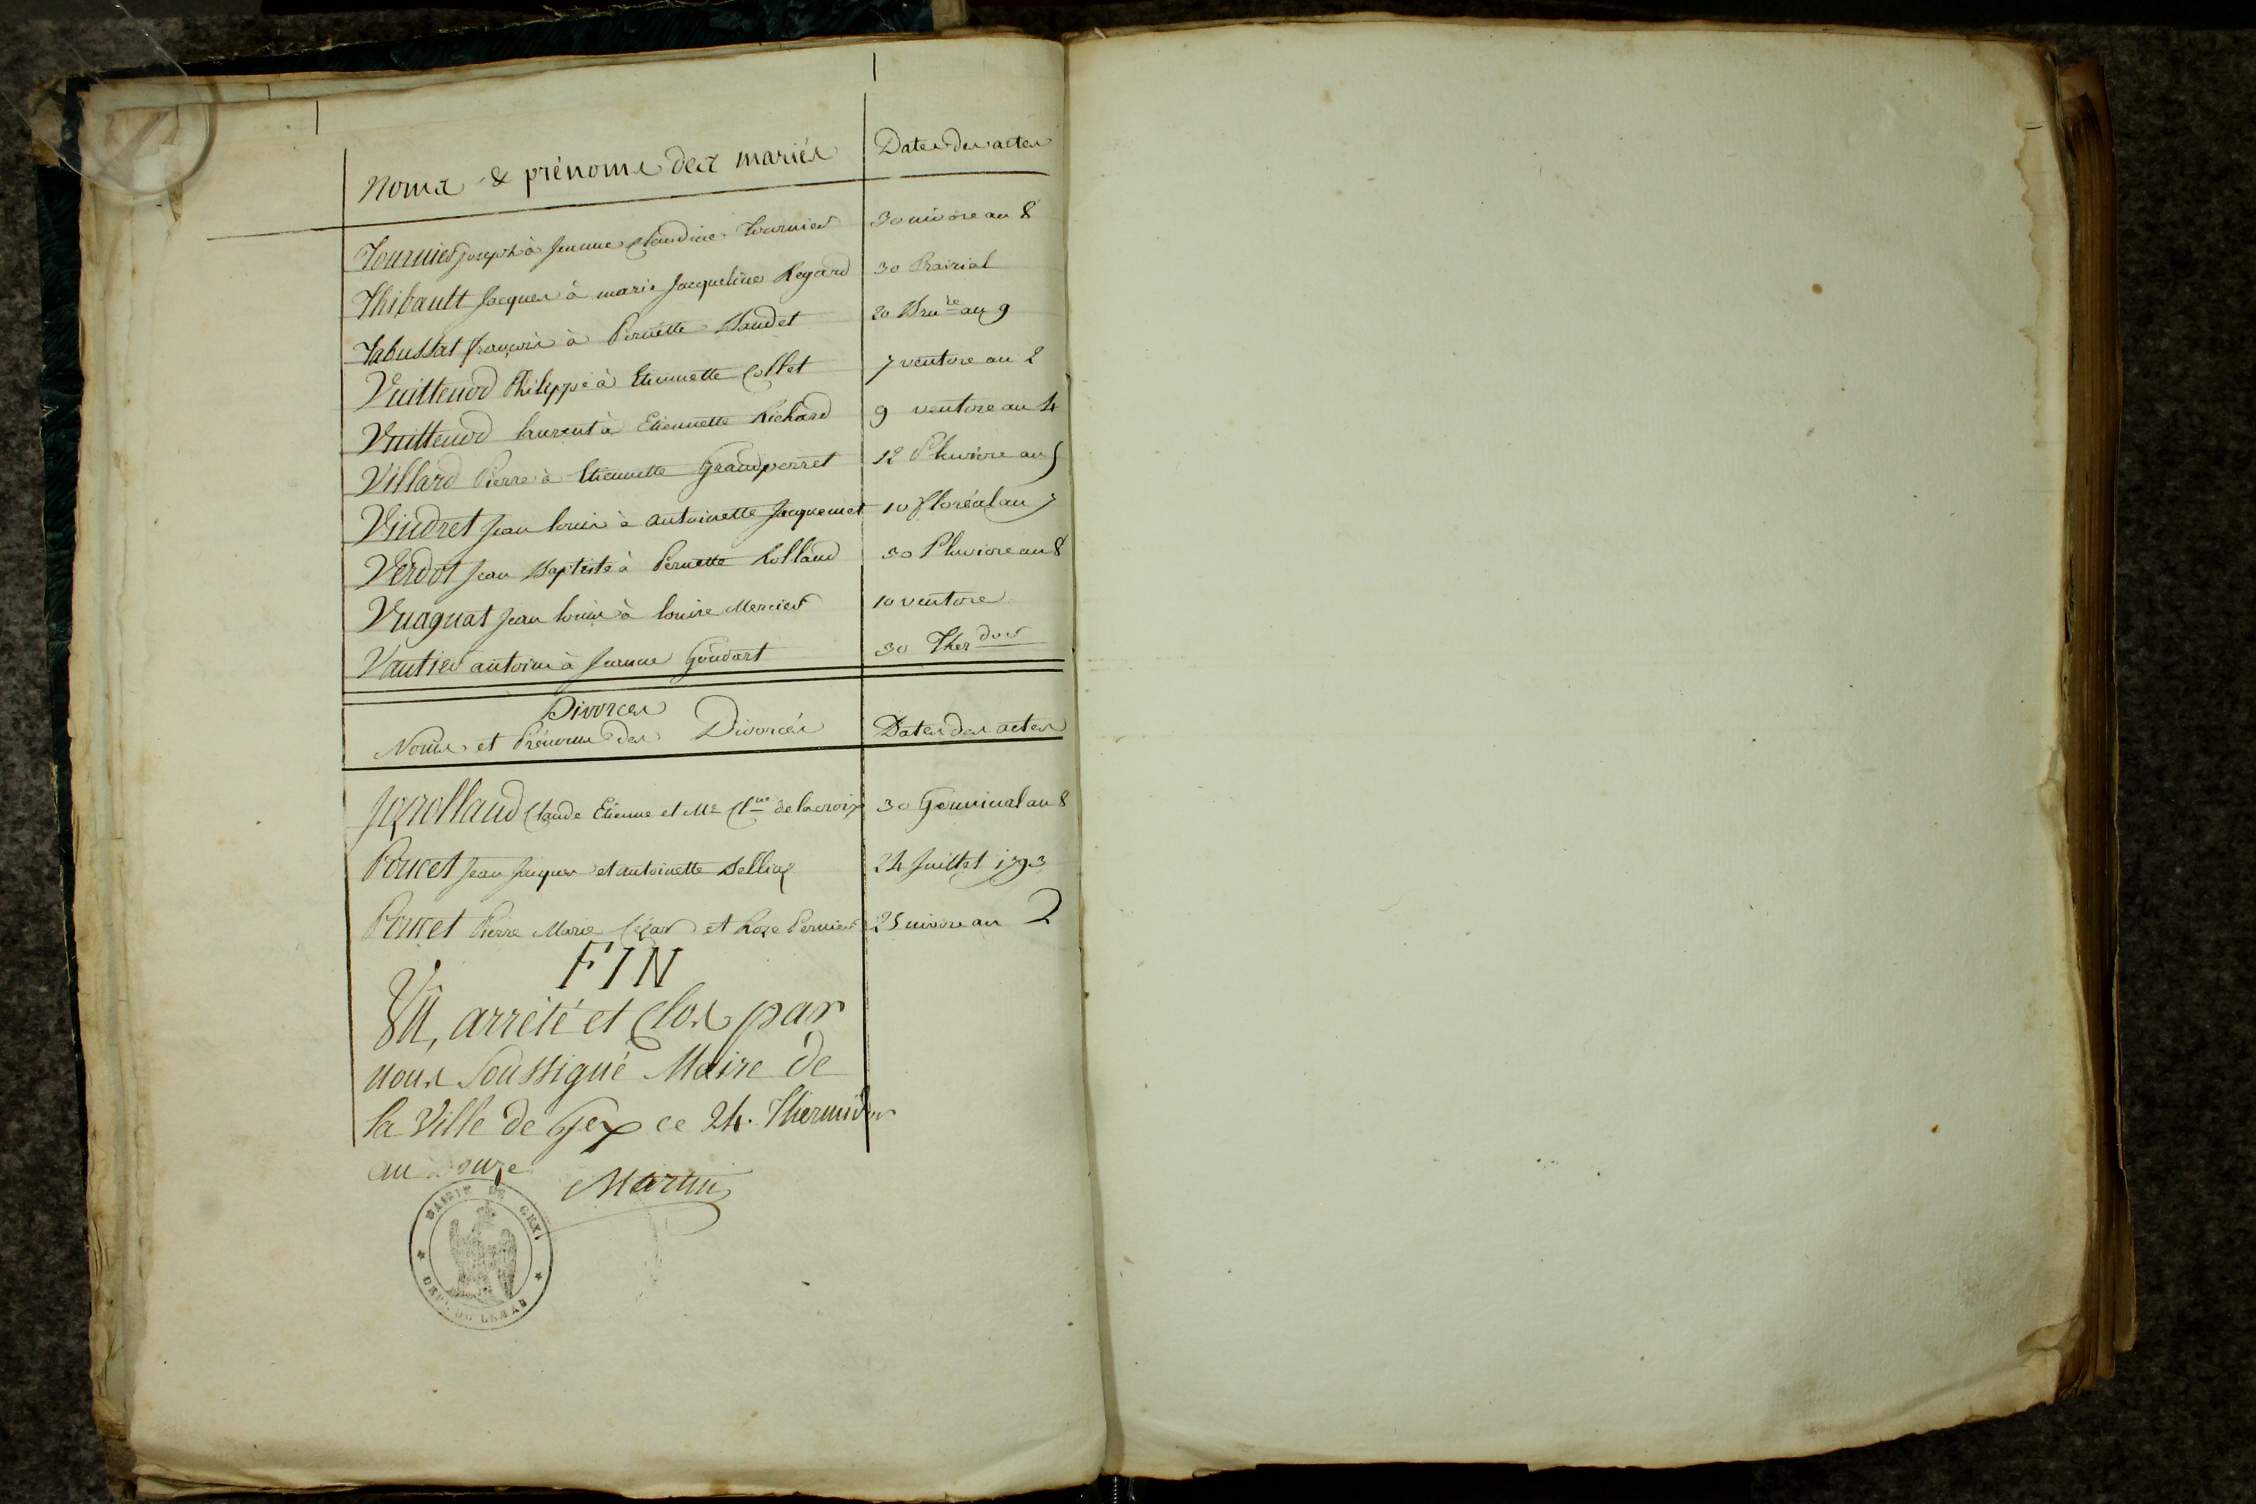 Noms & prénoms des mariés Dates des actes
Tournier joseph à Jeanne Claudine Tournier 30 nivose an 8
Thibault Jacques à marie Jacqueline Regard 30 Prairial
Tabussat françois à Pernette Baudet 20 Brure an 9
Vuittenod Philippe à Etiennette Collet 7 ventose an 2
Vuittenod laurent à Etiennette Richard 9 ventose an 4
Villard Pierre à Etiennette Grandperret 12 Pluviose an 5
Vindret Jean louis à antoinette Jacquemet 10 floréal an 7
Verdot Jean Baptiste à Pernette Rolland 30 Pluviose an 8
Vuagnat Jean louis à louise Mercier 10 ventose
Vautier antoine à Jeanne Goudart 30 Therdor
Divorces
Noms et Prénoms des Divorcés Dates des actes
Claude Etienne et Me Cine delacroix 30 Germinal an 8
Poncet Jean Jacques et antoinette 24 Juillet 1793
Poncet Pierre Marie Cézar et Roze Pernier 25 nivose an 2
FIN
Vû, arrêté et Clos par
nous Soussigné Maire de
la Ville de Gex ce 24. Thermidor
an Douze Martin
MAIRIE DE GEX
DEPT. DU LEMAN